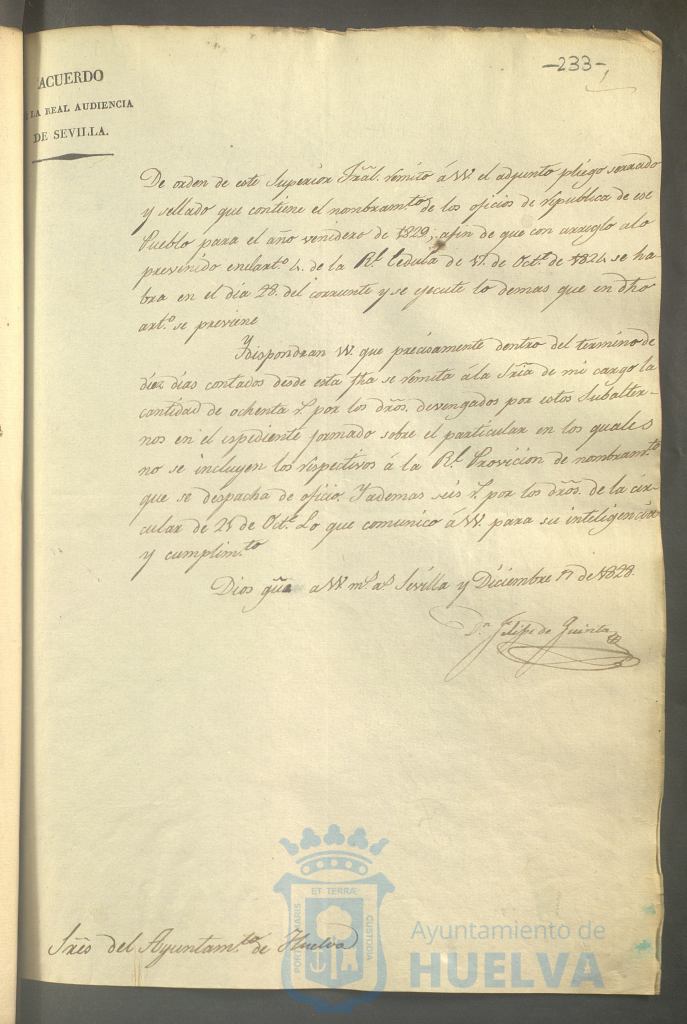 -233-
ACUERDO
LA REAL AUDIENCIA
DE SEVILLA.
De orden de este Superior Trãl. remito á VV. el adjunto pliego serrado
y sellado que contiene el nombram.to de los oficios de republica de ese
Pueblo para el año venidero de 1829; afin de que con arreglo alo
prevenido enelart.o 4. de la R.l Cedula de 17. de Oct.e de 1824 se ha-
bra en el dia 28 del corriente y se ejecute lo demas que en dho
art.o se previene
Y dispondran VV. que precisamente dentro del termino de
diez dias contados desde esta fha se remita ála Sria de mi cargo la
cantidad de ochenta r.s por los dros. devengados por estos Subalter-
nos en el espediente formado sobre el particular en los quales
no se incluyen los respectivos á la R.l Provicion de nombram.to
que se despacha de oficio. Y ademas seis r.s por los dros. de la cir-
cular de 25 de Oct.e Lo que comunico á VV. para su inteligencia
y cumplim.to
Dios gũe a VV. m.s a.s Sevilla y Diciembre 17 de 1828.
D.n Felipe de Quinta
Sres del Ayuntam.to de Huelva
PORTUS MARIS
ET TERRÆ
CUSTODIA
Ayuntamiento de
HUELVA